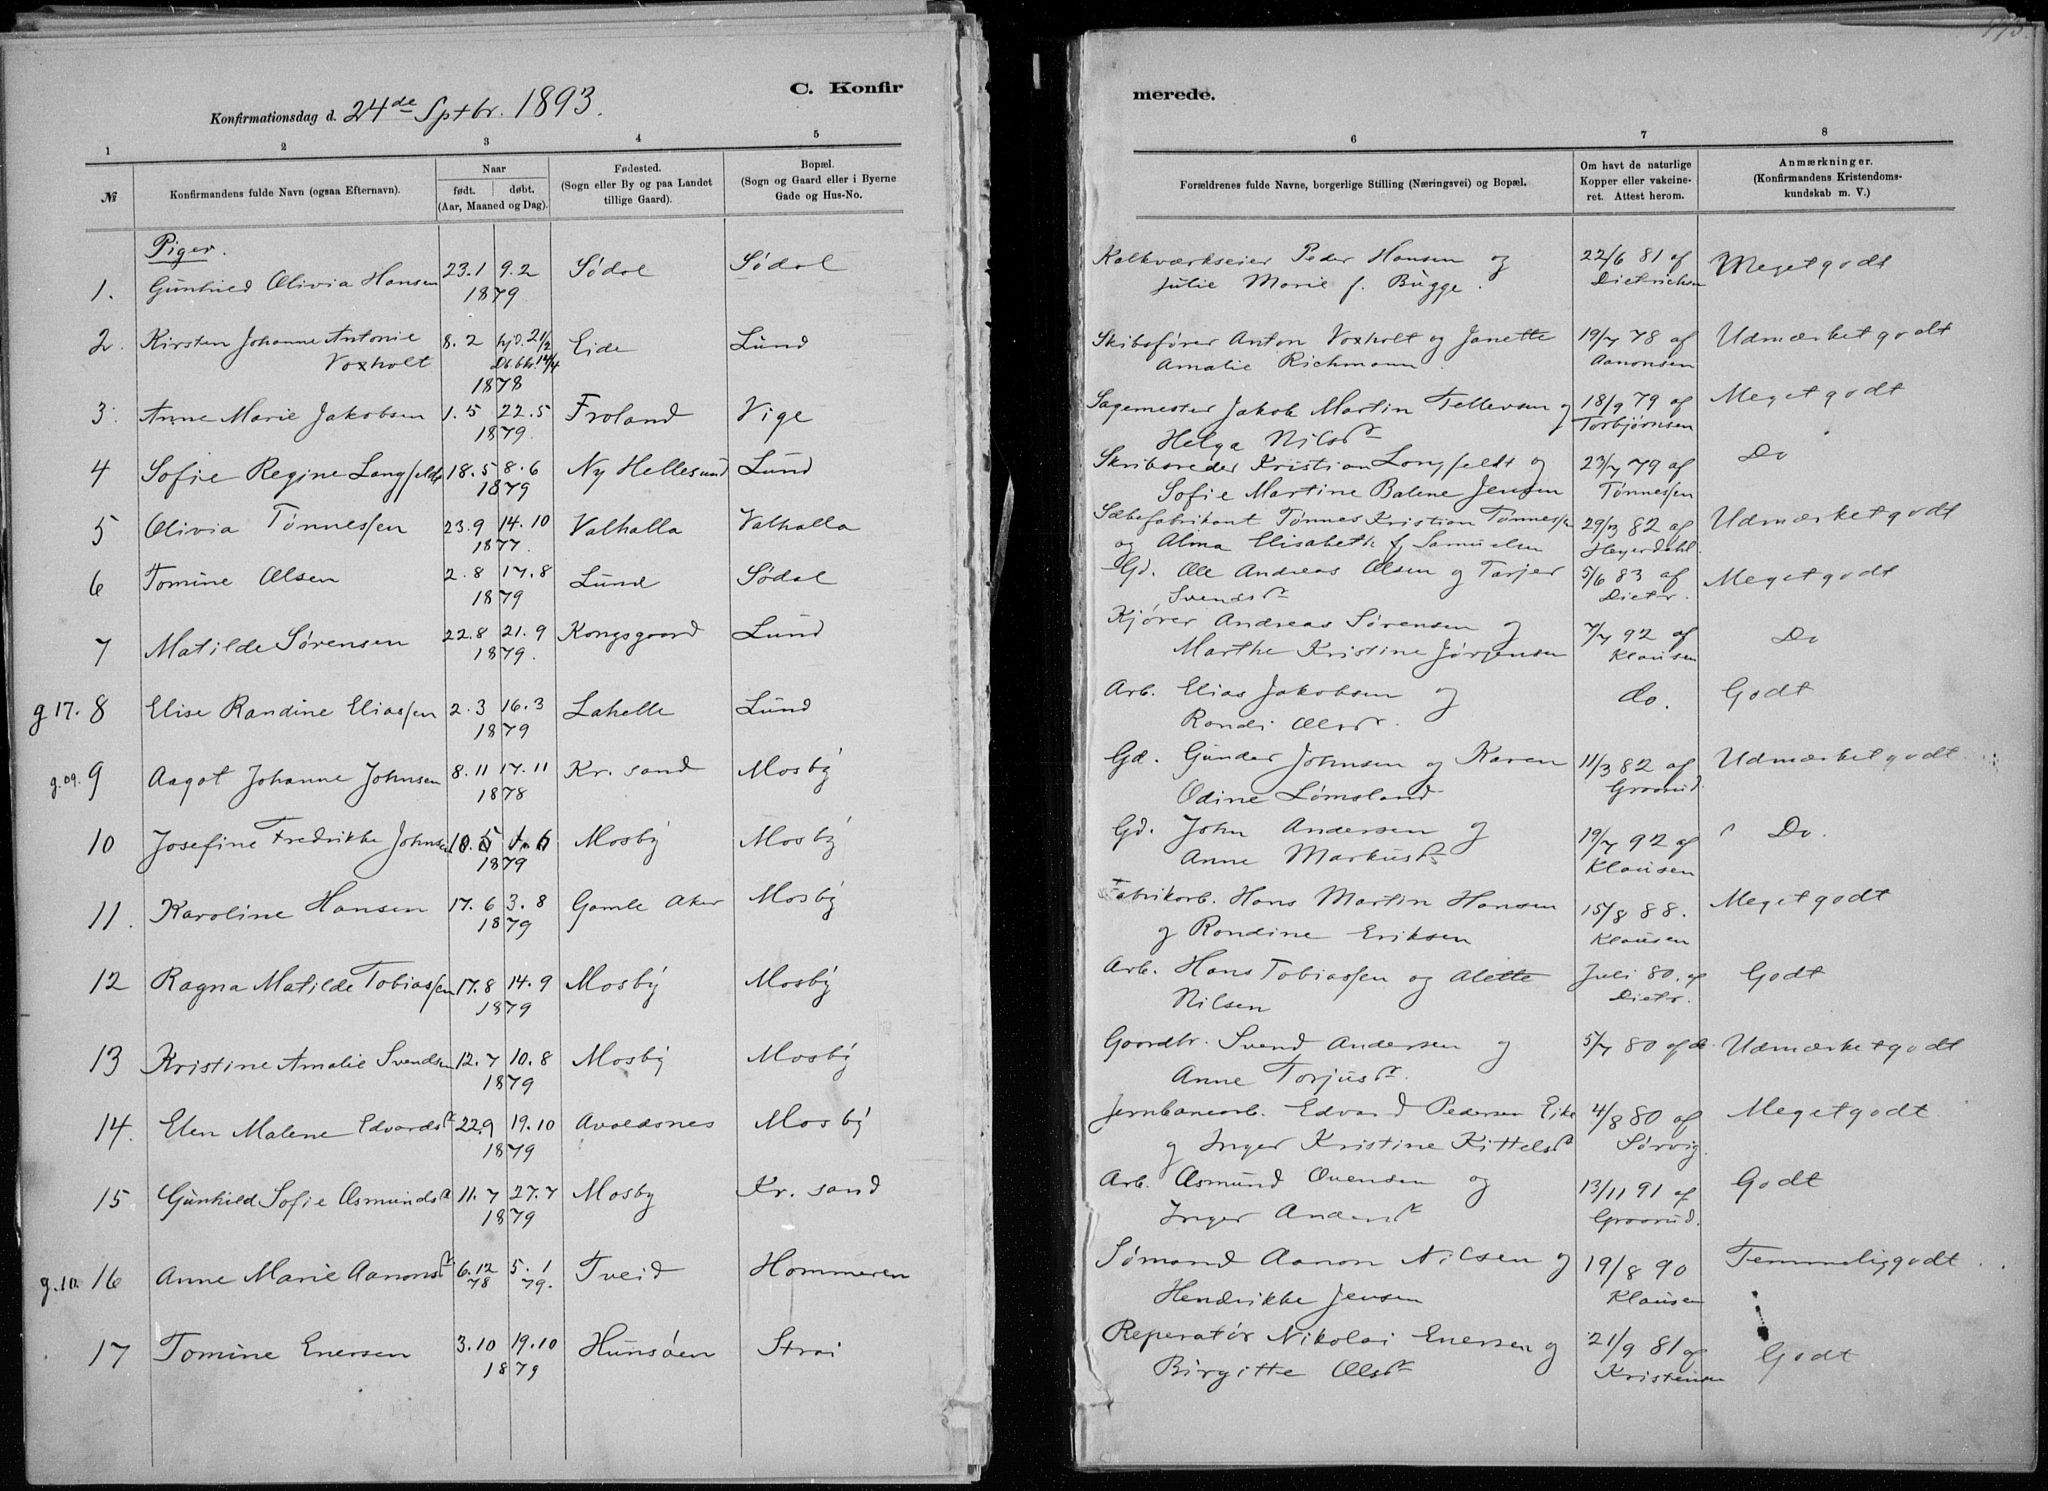 C. Konfir
merede.
Konfirmationsdag d. 24de Sptbr. 1893.
1 2 3 4 5 6 7 8
№
Konfirmandens fulde Navn (ogsaa Efternavn).
Naar
født. døbt.
(Aar, Maaned og Dag).
Fødested.
(Sogn eller By og paa Landet
tillige Gaard).
Bopæl.
(Sogn og Gaard eller i Byerne
Gade og Hus-No.
Forældrenes fulde Navne, borgerlige Stilling (Næringsvei) og Bopæl.
Om havt de naturlige
Kopper eller vakcine-
ret. Attest herom.
Anmærkninger.
(Konfirmandens Kristendoms-
kundskab m. V.)
Piger.
1. Gunhild Olivia Hansen 23.1 9.2 Sødal Sødal Kalkværkseier Peder Hansen og 22/6 81 af Megetgodt
1879 Julie Marie f. Bugge. Dietrichsen
2. Kirsten Johanne Antonie 8.2 hjd. 21/2 Eide Lund Skibsfører Anton Voxholt og Janette 19/7 78 af Udmærketgodt
Voxholt 14/4 Amalie Richmann. Aanonsen
1878
3. Anne Marie Jakobsen 1.5 22.5 Froland Vige Sagemester Jakob Martin Tellevsen og 18/9 79 af Megetgodt
1879. Helga Nilsdr Torbjørnsen
4 Sofie Regine Langfeldt 18.5 8.6 Ny Hellesund Lund Skibsreder Kristian Langfeldt og 23/7 79 af Do
1879 Sofie Martine Balene Jensen Tønnessen
5 Olivia Tønnessen 23.9 14.10 Valhalla Valhalla Sæbefabrikant Tønnes Kristian Tønnessen 29/13 82 af Udmærketgodt
1877. og Alma Elisabeth f. Samuelsen Heyerdahl.
6 Tomine Olsen 2.8 17.8 Lund Sødal Gd. Ole Andreas Olsen og Tarjer 5/6 83 af Megetgodt
1879 Svendsdr Dietr.
7 Matilde Sørensen 22.8 21.9 Kongsgaard Lund Kjører Andreas Sørensen og 7/7 92 af Do
1879. Marthe Kristine Jørgensen Klausen
g 17. 8 Elise Randine Eliassen 2.3 16.3 Lahelle Lund Arb. Elias Jakobsen og do. Godt
1879 Randi Olsdr.
g.09. 9 Aagot Johanne Johnsen 8.11 17.11 Kr. sand Mosby Gd. Gunder Johnsen og Karen 11/3 82 af Udmærketgodt
1878 Odine Lømsland Groorud.
10 Josefine Fredrikke Johnsen 10.5 1.6 Mosby Mosby Gd. John Andersen og 19/7 92 af Do.
1879 Anne Markusdr Klausen
11. Karoline Hansen 17.6 3.8 Gamle Aker Mosby Fabrikarb. Hans Martin Hansen 15/8 88. Megetgodt
1879 og Randine Eriksen Klausen
12 Ragna Matilde Tobiassen 17.8 14.9 Mosby Mosby Arb. Hans Tobiassen og Alette Juli 80. af Godt
1879 Nilsen Dietr.
13 Kristine Amalie Svendsen 12.7 10.8 Mosby Mosby Gaardbr. Svend Andersen og 5/7 80 af do Udmærketgodt
1879 Anne Torjusdr.
14. Elen Malene Edvardsdr 22.9 19.10 Avaldsnes Mosby Jernbanearb. Edvard Pedersen Eike 4/8 80 af Megetgodt
1879 og Inger Kristine Kittelsdr Sørvig.
15 Gunhild Sofie Osmundsdr 11.7 27.7 Mosby Kr. sand Arb. Osmund Ovensen og 13/11 91 af Godt
1879 Inger Andersdr Groorud.
g.10. 16 Anne Marie Aanonsdr 6.12 5.1 Tveid Hommeren Sømand Aanon Nilsen og 19/8 90 Temmeliggodt
78 79. Hendrikke Jensen Klausen
17 Tomine Enersen 3.10 19.10 Hunsøen Strai Reperatør Nikolai Enersen og 21/9 81 af Godt
1879 Birgitte Olsdr Kristensen